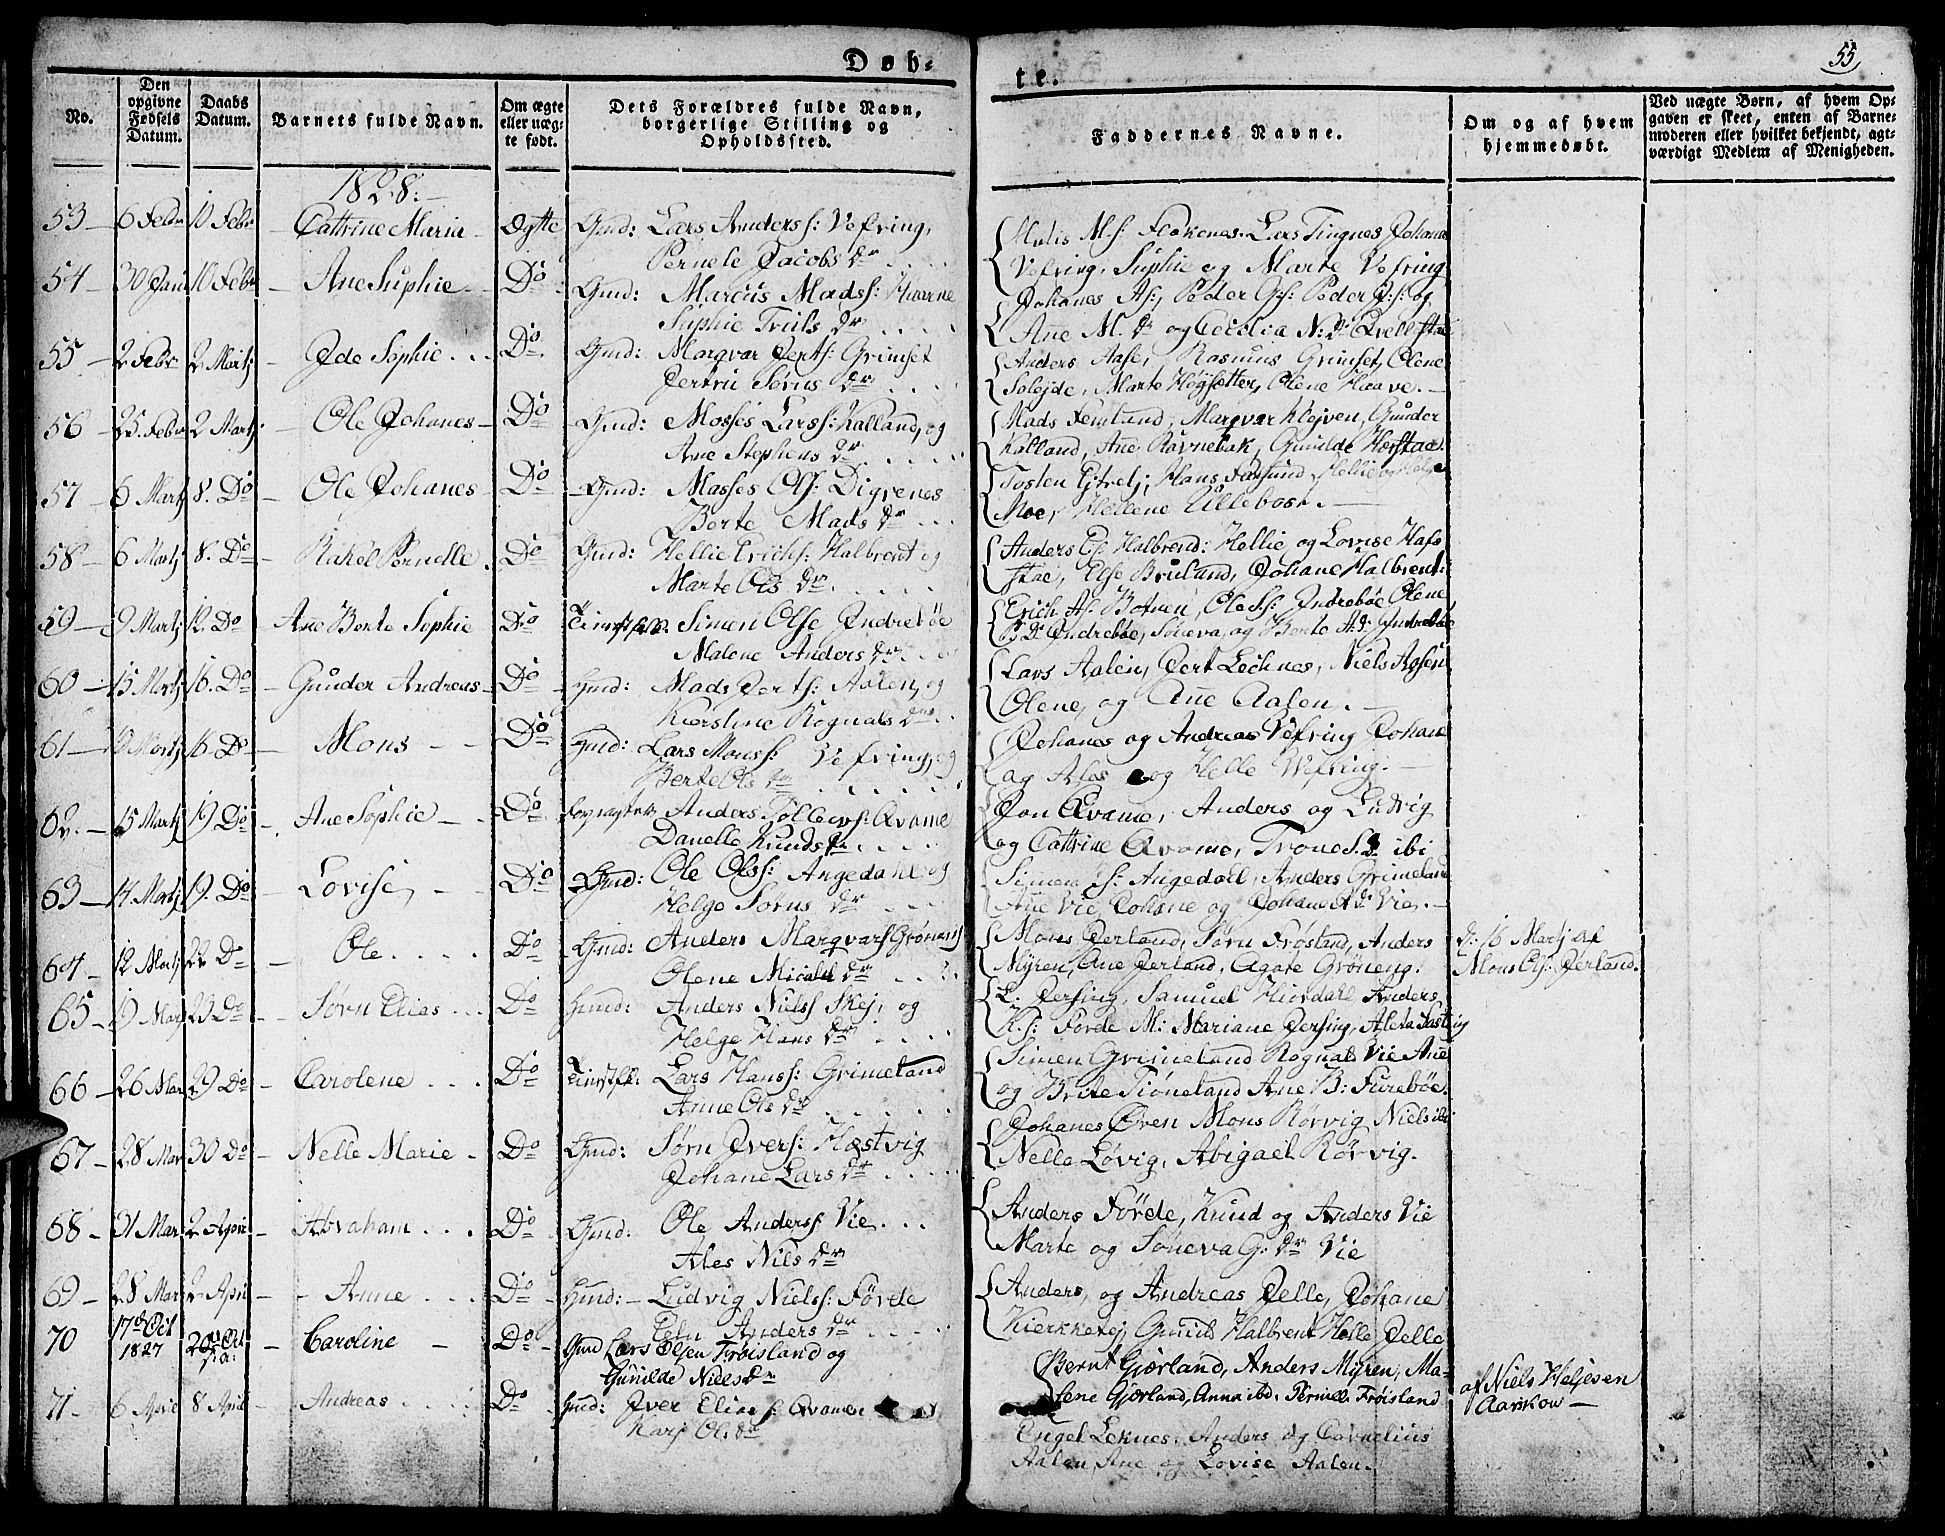 Døb-
te.
55
No.
Den opgivne Fødsels Datum.
Daabs Datum.
Barnets fulde Navn.
Om ægte eller uæg- te født.
Dets Forældres fulde Navn, borgerlige Stilling og Opholdssted.
Faddernes Navne.
Om og af hvem hjemmedøbt.
Ved uægte Børn, af hvem Op- gaven er skeet, enten af Barne- moderen eller hvilket bekjendt, agt- værdigt Medlem af Menigheden.
1828.
53 6 Febr 10 Febr Cattrine Maria Ægte Gmd: Lars Anderss: Vefring,
Pernele Jacobs Dr
Lars Tingnes Johane
Vefring, Suphie og Marte Vefring
54 30 Jan 10 Febr Ane Suphie Do Gmd: Marcus Madss: Haarne
Suphie Truls Dr
Johanes As: Peder Gs: Peder Js: og
Ane M. Dr og Cecilia N: Dr
55 2 Febr 2 Martj Jde Sophie Do Gmd: Marqvar Jerts: Grimset
Jertru Sørns Dr
Anders Aase, Rasmus Grimset, Olene
Solejde, Marte Høysetter, Olene Haave.
56 25 Febr 2 Martj Ole Johanes Do Gmd: Mosses Larss: Kalland, og
Ane Stephens Dr
Mads Femland, Marqvar Klejven, Gunder
Kalland, Ane Ravnebak, Gunilde Herstad
57 6 Martj 8. Do Ole Johanes Do Gmd: Masses Ols: Digrenes
Berte Mads Dr
Tosten Hans Hellie og Helge
Moe, Hellene Ullebost.
58 6 Martj 8. Do Rakel Pernelle Do Gmd: Hellie Erichs: Halbrent og
Marte Ols Dr
Anders Halbrend: Hellie og Lovise Hafs
stad, Else Bruland, Johane Halbrent
59 9 Martj 12. Do Ane Berte Sophie Do Simen Olse Jndrebøe
Malene Anders Dr
Erich As: Botnen, Ole Ss: Jndrebøe Olene
Jndrebøe, Søneva, og Berte A: D: Jndrebøe
60 15 Martj 16. Do Gunder Andreas Do Gmd: Mads Jerts: Aalen, og
Kierstine Rognals Dr
Lars Aalen, Jert Lecknes, Niels
Olene, og Ane Aalen.
61 Martj 16. Do Mons Do Gmd: Lars Monss: Vefring, og
Berte Ols Dr
Johanes og Andreas Vefring Johane
og Ales og Helle Wefring.
62. 15 Martj 19 Do Ane Sophie Do Anders Tollevs: Qvame
Danelle Knuds Dr
Jon Qvame, Anders og Ludvig
og Cattrine Qvame, Trone S. D. ibi
63 14 Martj 19. Do Lovise Do Gmd: Ole Olss: Angedahl og
Helge Sørns Dr
Simen s: Angedall, Anders Grimeland
Ane Vie, Johane og Johane Vie.
64 12 Martj 22 Do Ole Do Gmd: Anders Marqvars Grøneng
Olene Micaël Dr
Mons Jerland, Sørn Frøsland, Anders
Myren, Ane Jerland, Agate Grøneng.
D: 16 Martj af
Mons Ols: Jerland.
65 19 Mar 23 Do Sørn Elias Do Gmd: Anders Nielss Skej, og
Helge Hans Dr
L. Jersing, Samuel Hiordall, Anders
K. s: Førde M: Mariane Jersing,
66 26 Mar 29 Do Carolene Do Lars Hanss: Grimeland
Anne Ols Dr
Simen Grimeland Rognals Vie Ane
og Brite Ane B: Furebøe
67 28 Mar 30 Do Nelle Marie Do Gmd: Sørn Jvers: Hæstvig
Johane Lars Dr
Johanes Øren Mons Rørvig Niels ibi
Nelle Løvig, Abigael Rørvig.
68 31 Mar 2 Apri Abraham Do Gmd: Ole Anderss: Vie
Ales Nils Dr
Anders Førde, Knud og Anders Vie
Marte og Søneva G: Dr Vie
69 28 Mar 2 Apri Anne Do Gmd: Ludvig Nielss: Førde
Anders Dr
Anders, og Andreas Jelle, Johane
Halbrent Helle Jelle
70 17de Oct 1827 Caroline Do Gmd Lars Olsen Frøisland og
Gunilde Niels Dr
Bernt Gjørland, Anders Myren, Ma-
lene Gjørland, Anna ibd: Pernele Frøisland
af Niels Heljesen
Aarskow
71 6 Apri 8 April Andreas Do Gmd: Jver Elias s: Qvamen
Kari Ols Dr
Engel Leknes, Anders og Cornelius
Aalen, Ane og Lovise Aalen.